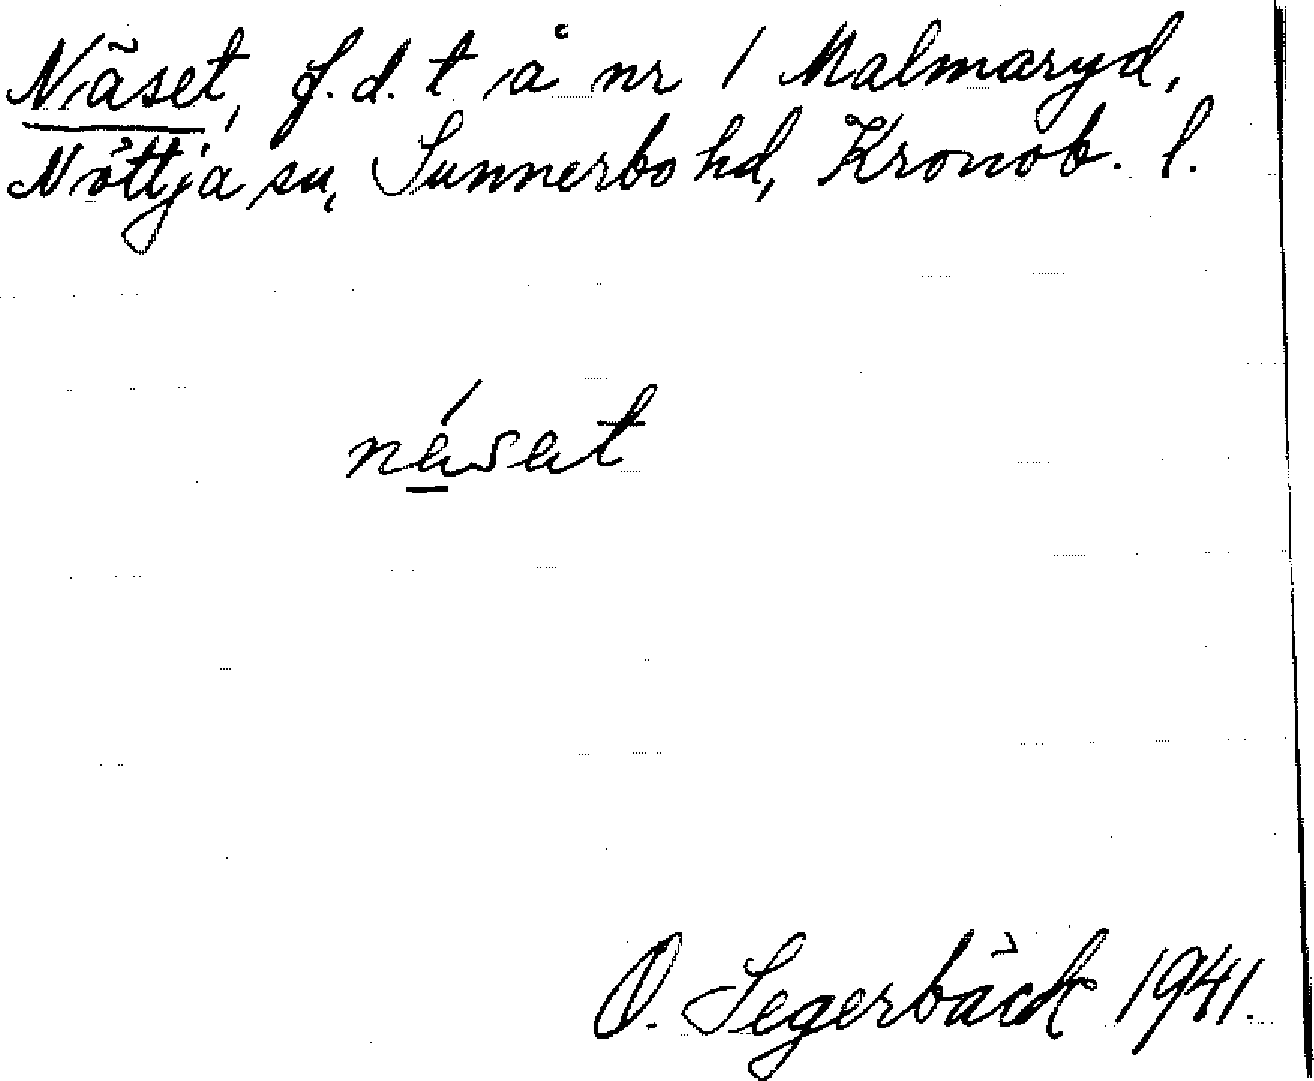 Näset, f.d. t å nr 1 Malmaryd,
Nöttja sn, Sunnerbo hd, Kronob. l.
näsat
O. Segerbäck 1941.